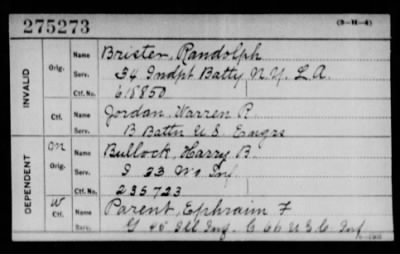 275273
(3-H-4)
INVALID
Orig.
Name Brister, Randolph
Serv. 34 Indpt Batty N.Y. L.A.
Ctf. No. 615850
Ctf.
Name Jordan, Warren P.
Serv. B Battn U.S. Engrs
DEPENDENT
m
Orig.
Name Bullock, Harry B.
Serv. I 23 Inf
Ctf. No. 235723
W
Ctf.
Name Parent, Ephraim F
Serv. G 45 Ill Inf. C 66 U.S.C. Inf